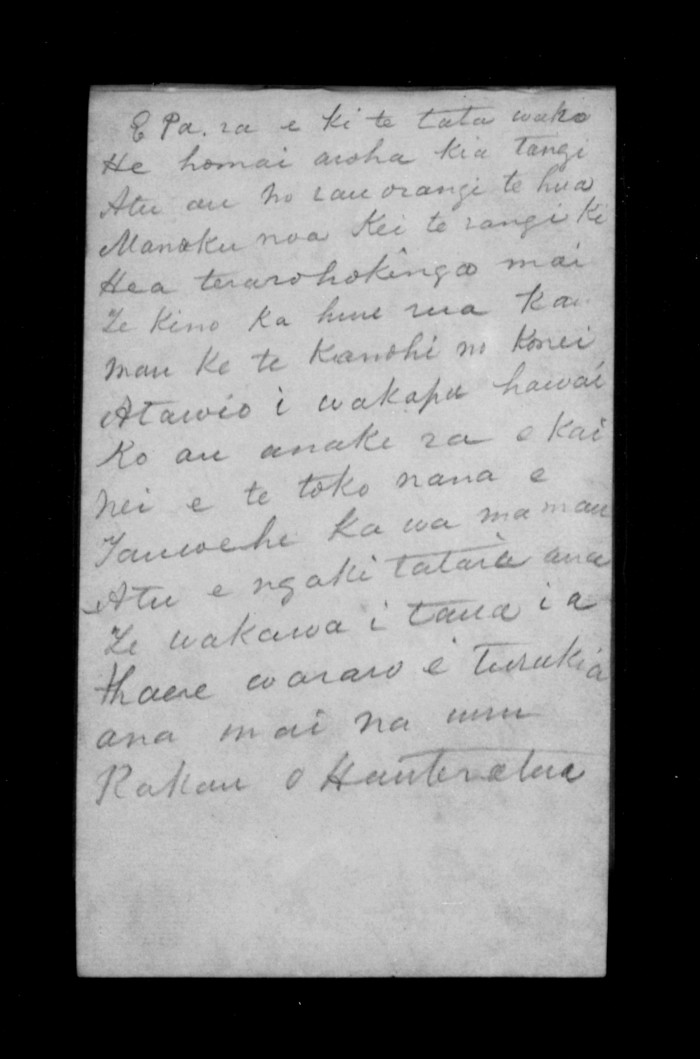 E Pa. ra e ki te tata wako
He homai aroha kia tangi
Atu au no rau orangi te hua
Manoku noa Kei te rangi ki
Hea terarohokinga mai
Te Kino ka hue rua Ka
mau ke te Kanohi no Konei
Atawio i wakapu hawai
Ko au anake ra e kai
nei e te toko nana e
Tauwehe ka wa ma mau
Atu e ngaki tatara ana
Te wakawa i taua i a
Haere wararo e turukia
ana mai na uru
Rakau o Hauteratua